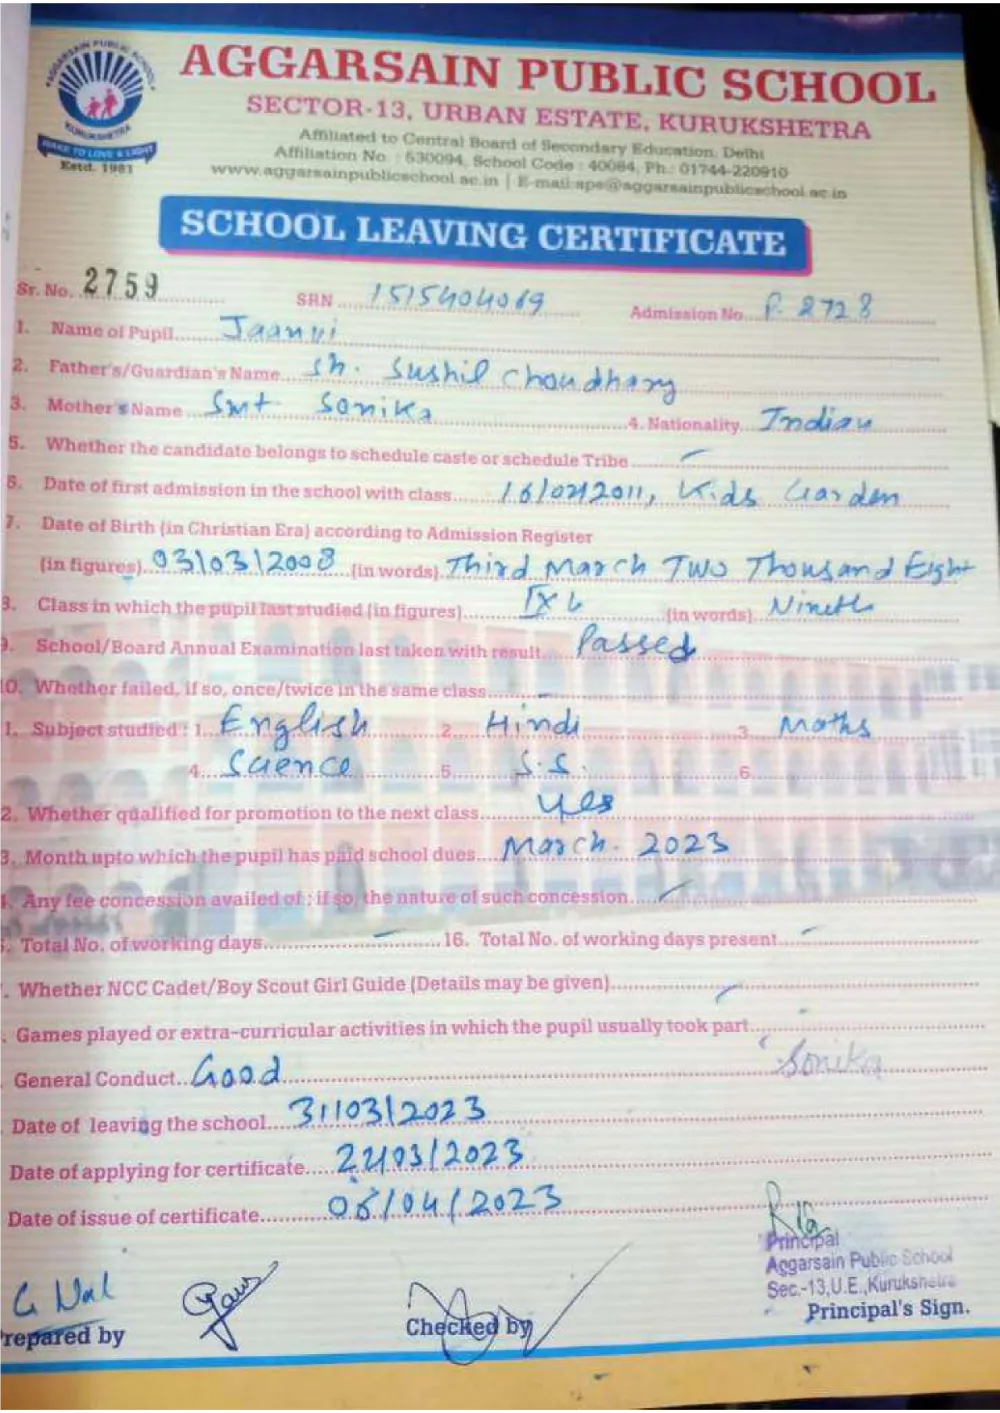 AGGARSAIN PUBLIC SCHOOL
SECTOR-13, URBAN ESTATE, KURUKSHETRA
Affiliated to Central Board of Secondary Education, Delhi
Affiliation No. : 530094, School Code : 40084, Ph.: 01744-220910
www.aggarsainpublicschool.ac.in | E-mail:aps@aggarsainpublicschool.ac.in
AGGARSAIN PUBLIC SCHOOL
KURUKSHETRA
WAKE TO LOVE & LIGHT
Estd. 1981
SCHOOL LEAVING CERTIFICATE
Sr. No. 2759 SRN 1515404069 Admission No. P. 2728
1. Name of Pupil Jaanvi
2. Father's/Guardian's Name Sh. Sushil Choudhary
3. Mother's Name Smt Sonika 4. Nationality Indian
5. Whether the candidate belongs to schedule caste or schedule Tribe –
6. Date of first admission in the school with class 16/02/2011, Kids Garden
7. Date of Birth (in Christian Era) according to Admission Register
(in figures) 03/03/2008 (in words) Third March Two Thousand Eight
8. Class in which the pupil last studied (in figures) IX (in words) Nineth
9. School/Board Annual Examination last taken with result Passed
10. Whether failed, if so, once/twice in the same class –
1. Subject studied : 1. English 2. Hindi 3. Maths
4. Science 5. S.S. 6.
2. Whether qualified for promotion to the next class yes
3. Month upto which the pupil has paid school dues March. 2023
4. Any fee concession availed of ; if so, the nature of such concession –
5. Total No. of working days – 16. Total No. of working days present –
. Whether NCC Cadet/Boy Scout Girl Guide (Details may be given) –
. Games played or extra-curricular activities in which the pupil usually took part –
General Conduct Good Sonika
Date of leaving the school 31/03/2023
Date of applying for certificate /03/2023
Date of issue of certificate /04/2023
Principal
Aggarsain Public School
Sec.-13,U.E.,Kurukshetra
Principal's Sign.
Prepared by Checked by